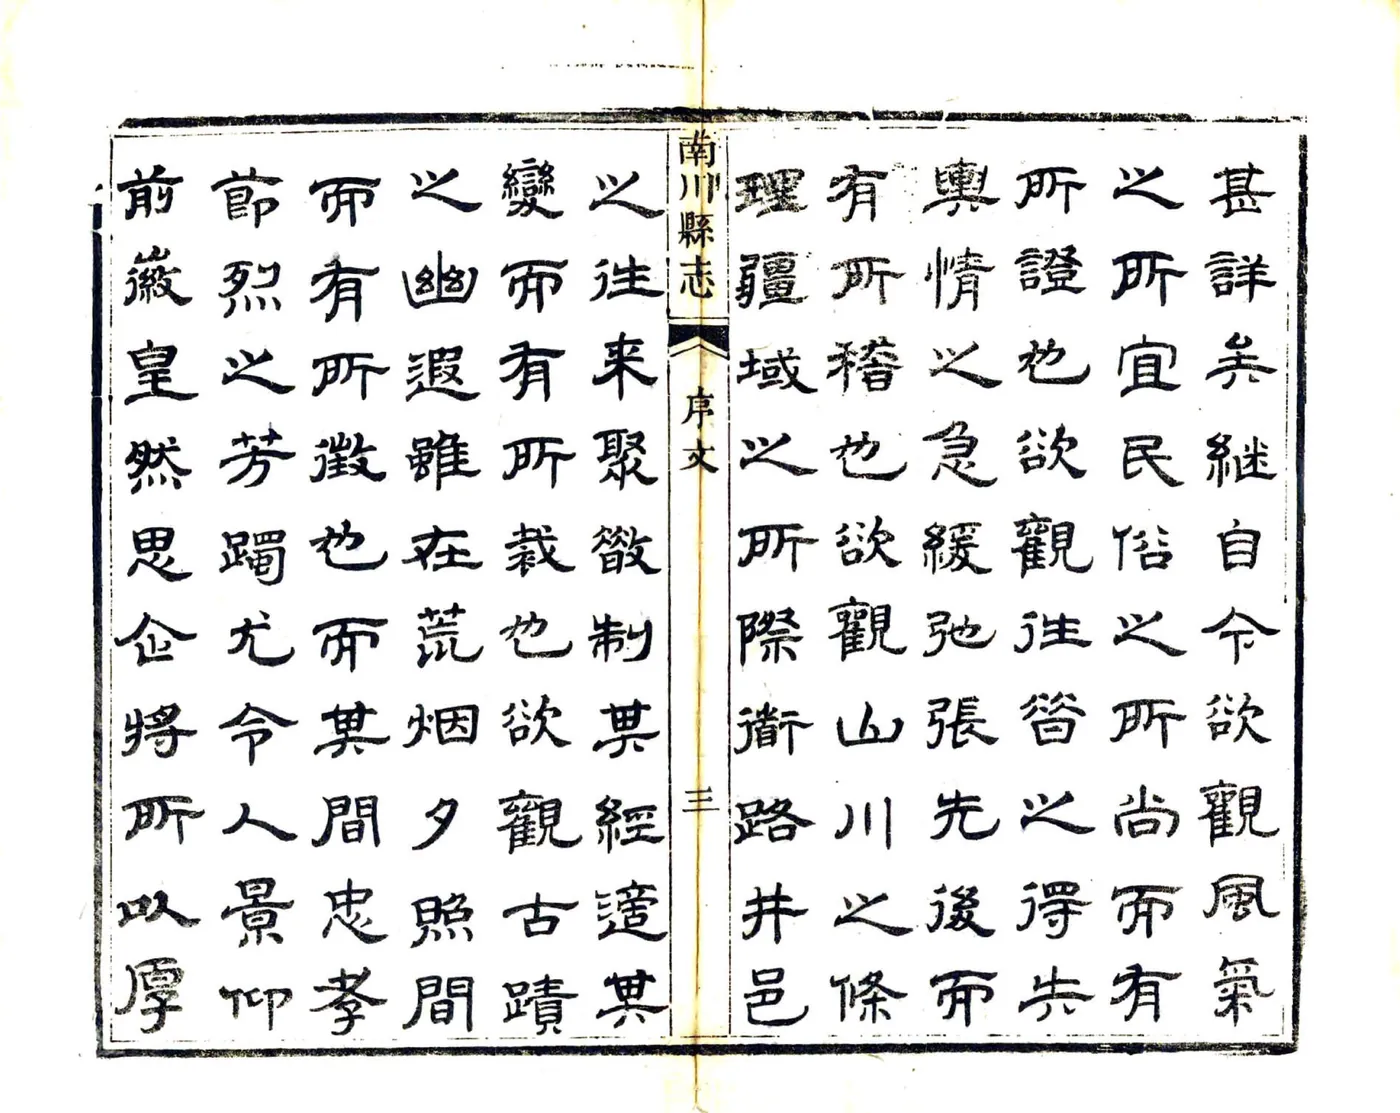 甚詳矣継自今欲觀風氣
之所宜民俗之所尚而有
所證也欲觀往昔之得失
輿情之急緩弛張先後而
有所稽也欲觀山川之條
理疆域之所際衜路井邑
南川縣志 序文 三
之往来聚散制其經適其
變而有所裁也欲觀古蹟
之幽遐雖在荒烟夕照間
而有所徵也而其間忠孝
節烈之芳躅尤令人景仰
前徽皇然思企將所以厚